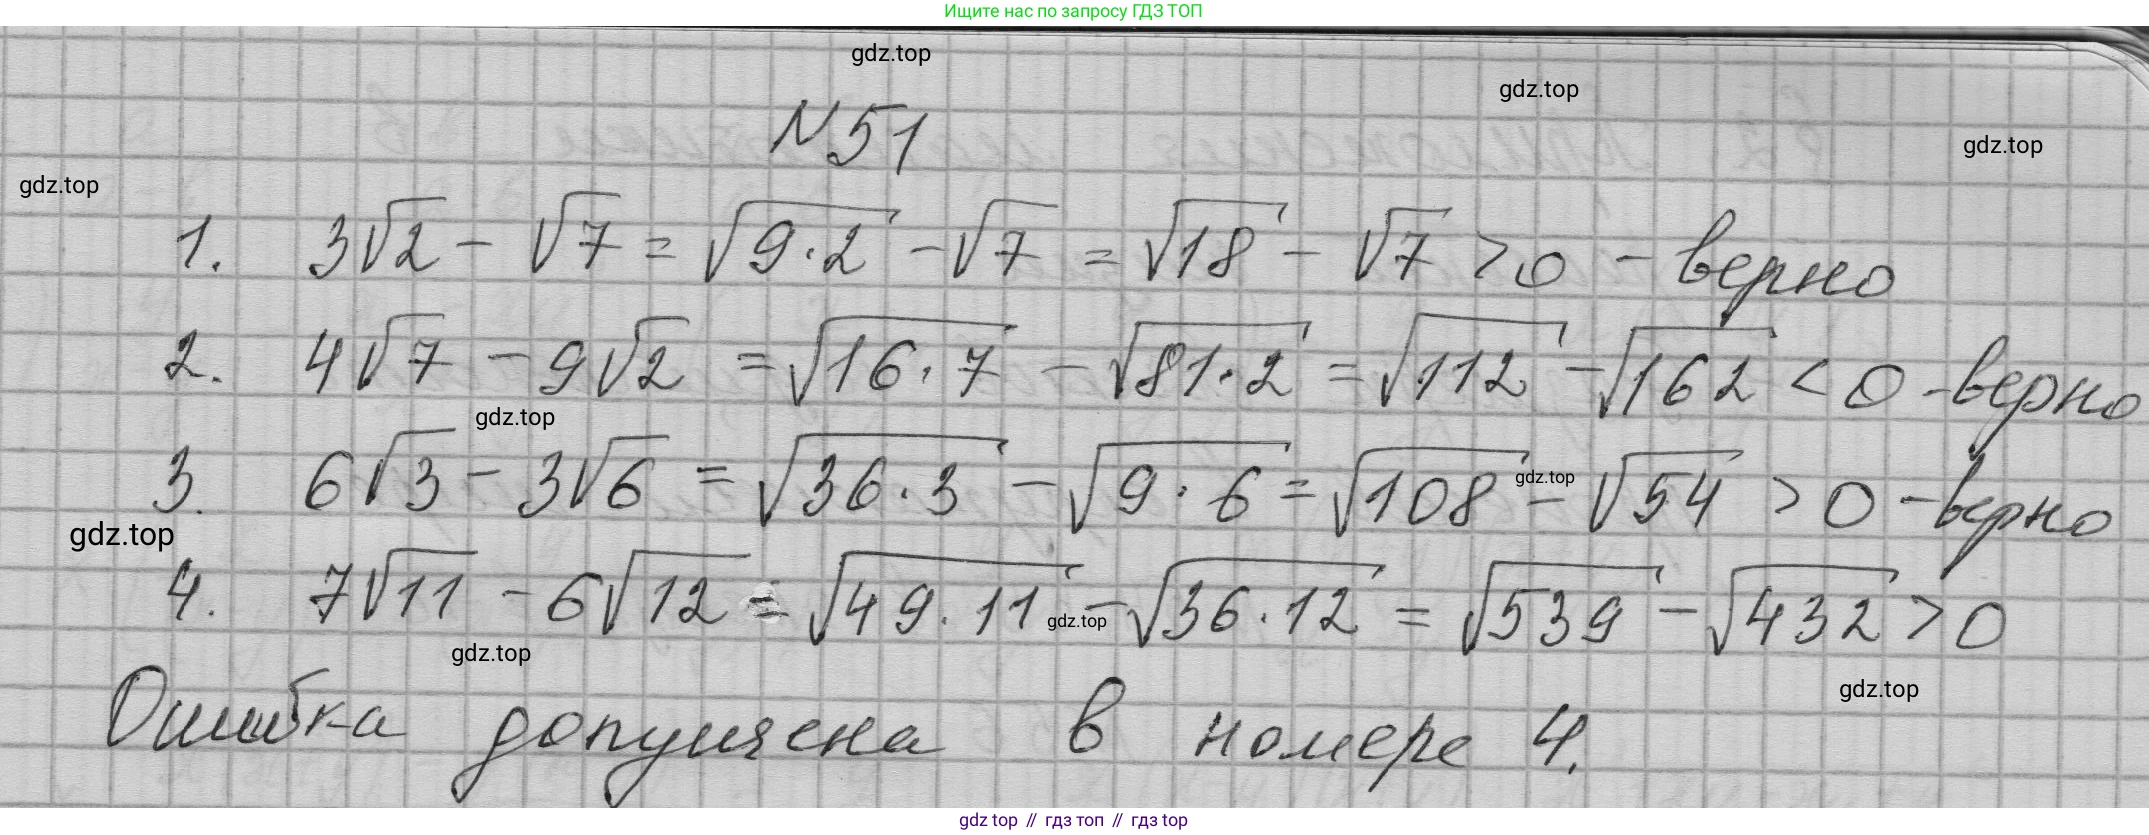 Ищите нас по запросу ГДЗ ТОП
gdz.top
gdz.top
№51
gdz.top
gdz.top
1. 3√2 - √7 = √9·2 - √7 = √18 - √7 > 0 - верно
2. 4√7 - 9√2 = √16·7 - √81·2 = √112 - √162 < 0 - верно
gdz.top
3. 6√3 - 3√6 = √36·3 - √9·6 = √108 - √54 > 0 - верно
gdz.top
gdz.top
4. 7√11 - 6√12 = √49·11 - √36·12 = √539 - √432 > 0
gdz.top
gdz.top
gdz.top
Ошибка допущена в номере 4.
gdz top // гдз топ // гдз top